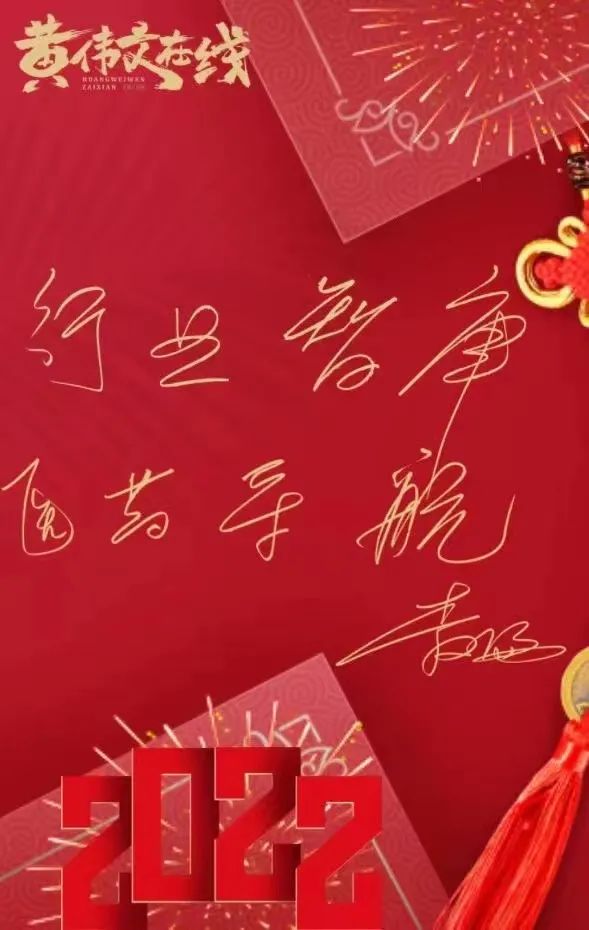 黄伟文在线
HUANGWEIWEN
ZAIXIAN
行业智库
医药导航
2022